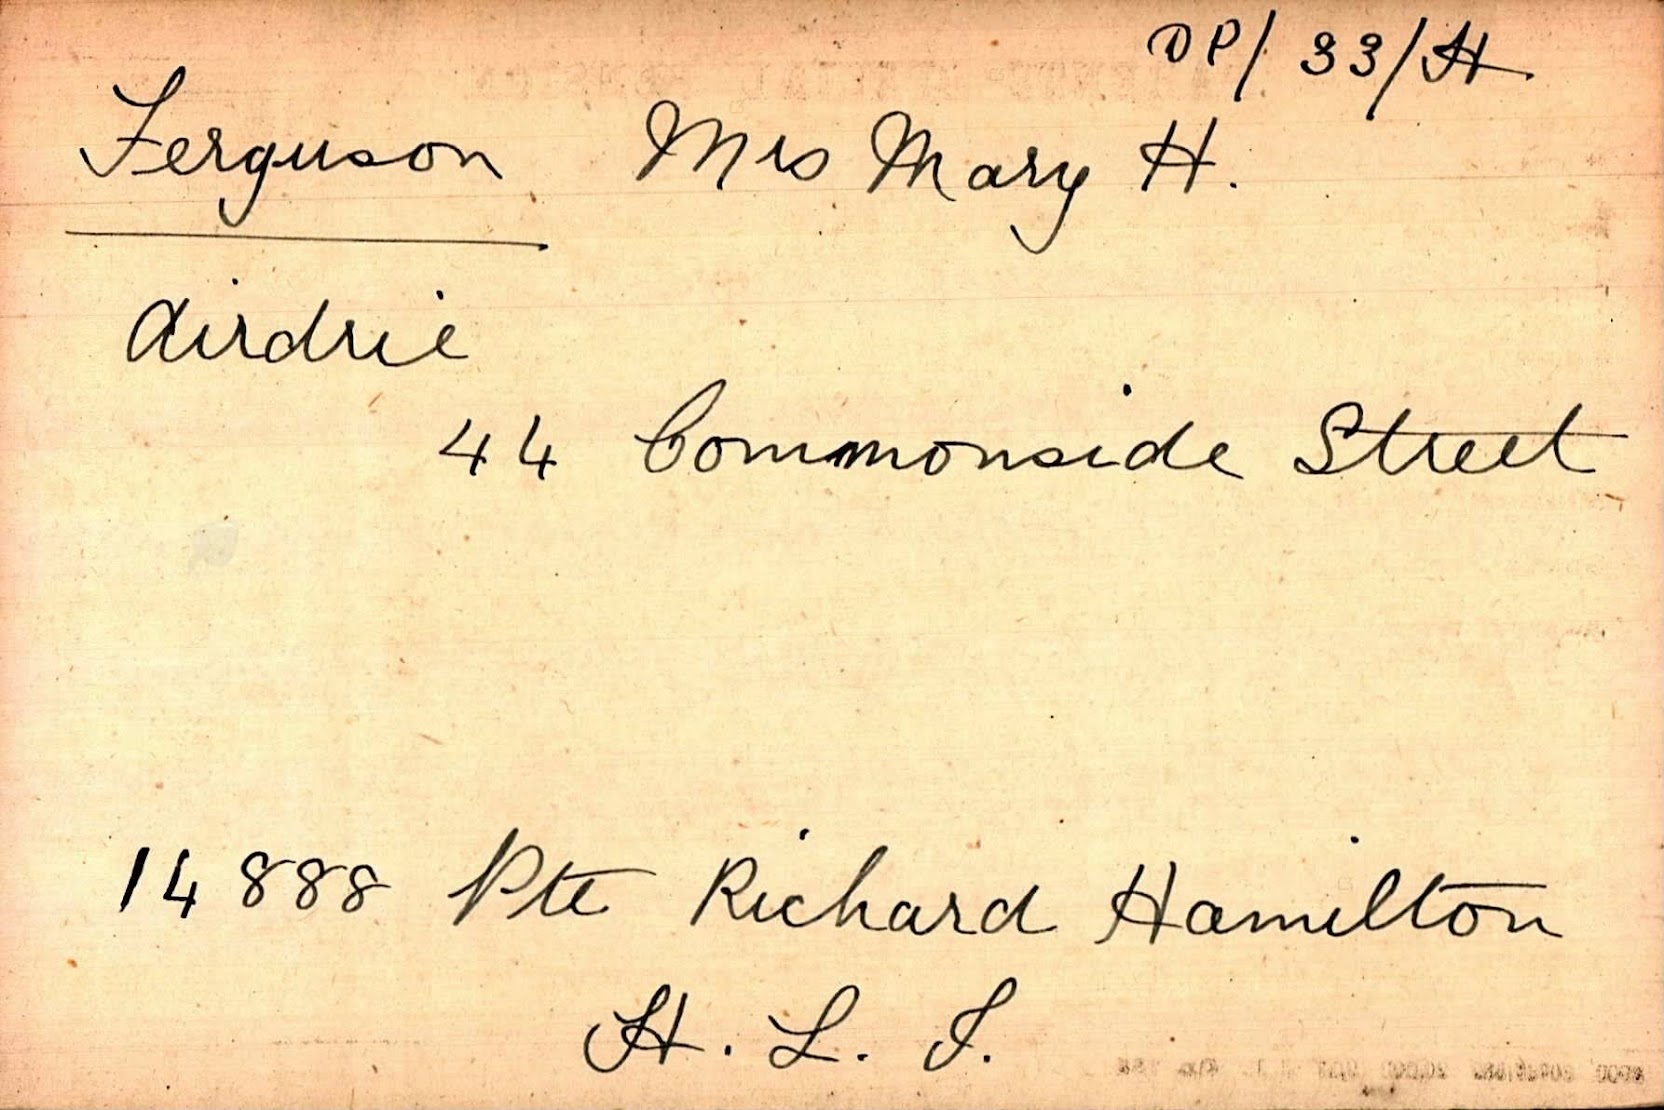 DP/33/H
Ferguson Mrs Mary H.
Airdrie
44 Commonside Street
14888 Pte Richard Hamilton
H. L. I.